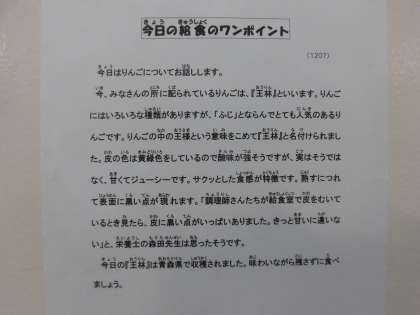 今日の給食のワンポイント
(1207)
今日はりんごについてお話しします。
今、みなさんの所に配られているりんごは、『王林』といいます。りんご
にはいろいろな種類がありますが、「ふじ」とならんでとても人気のあるり
んごです。りんごの中の王様という意味をこめて『王林』と名付けられまし
た。皮の色は黄緑色をしているので酸味が強そうですが、実はそうでは
なく、甘くてジューシーです。サクッとした食感が特徴です。熟すにつれ
て表面に黒い点が現れます。「調理師さんたちが給食室で皮をむいて
いるとき見たら、皮に黒い点がいっぱいありました。きっと甘いに違いな
い」と、栄養士の森田先生は思ったそうです。
今日の『王林』は青森県で収穫されました。味わいながら残さずに食べ
ましょう。